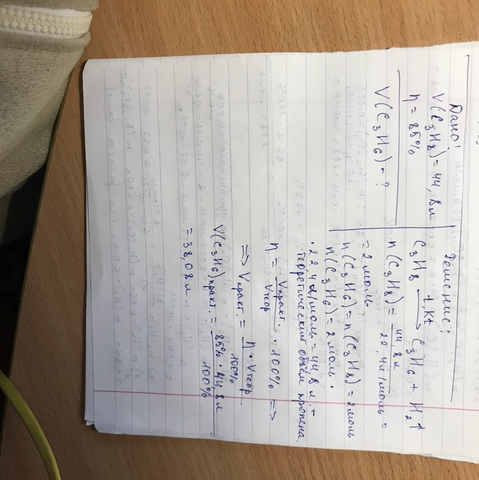 Дано:
V(C₃H₈)=44,8л
η = 85%
V(C₃H₆) = ?
Решение:
C₃H₈ ⟶ t, Kt C₃H₆ + H₂↑
n(C₃H₈) = 44,8л / 22,4л/моль =
= 2моль.
n(C₃H₆) = n(C₃H₈) = 2моль
n(C₃H₆) = 2 моль ·
· 22,4л/моль = 44,8 л –
теоретический объём пропена
η = Vпракт. / Vтеор · 100% ⇒
⇒ Vпракт. = η · Vтеор / 100%
V(C₃H₆)практ. = 85% · 44,8л / 100% =
= 38,08л.